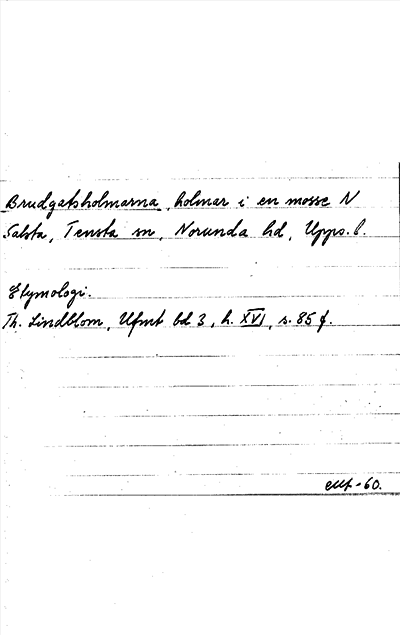 Brudgatsholmarna, holmar i en mosse N
Salsta, Tensta sn, Norunda hd, Upps. l.
Etymologi.
Th. Lindblom, Ufmt bd 3, h. XVI, s. 85 f.
-60.